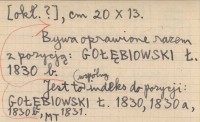 [okł.?], cm 20 X 13.
Bywa oprawione razem
z pozycją: GOŁĘBIOWSKI Ł.
1830 b.
wspólny
Jest to indeks do pozycji:
GOŁĘBIOWSKI Ł. 1830, 1830 a,
1830 b, 1831.
MT